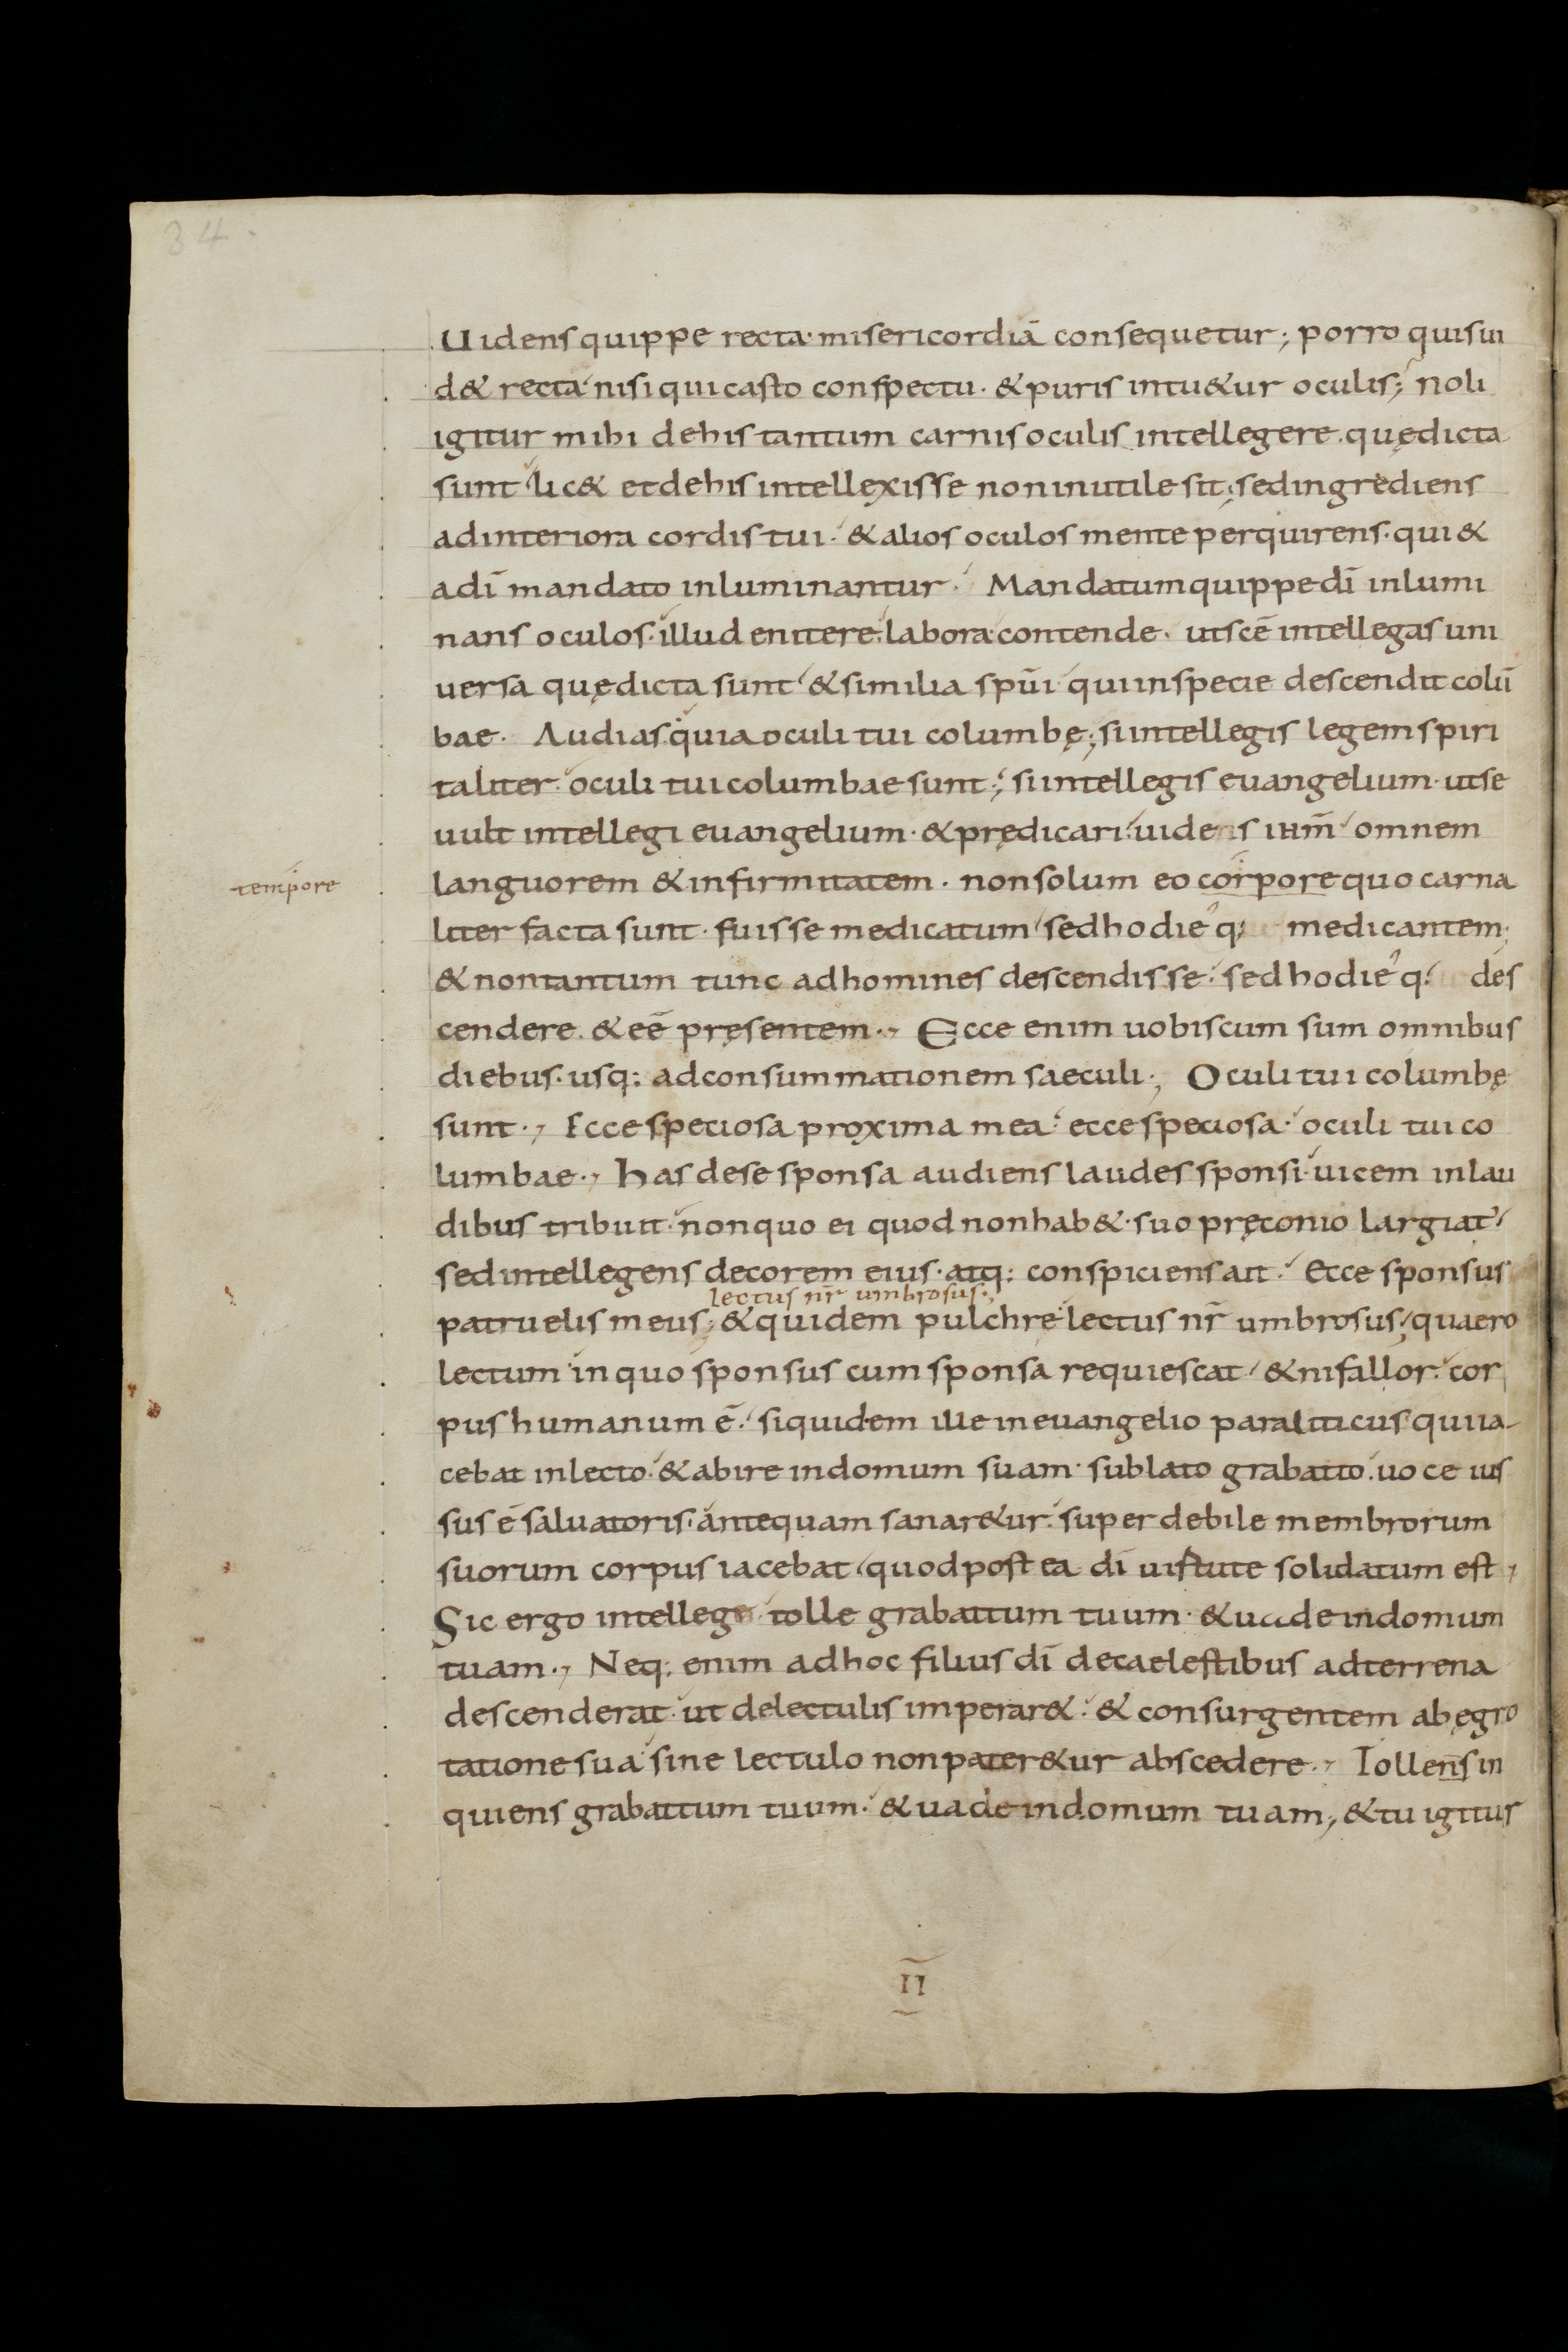 34.
Uidens quippe recta· misericordiā consequetur; porro quis ui
d& recta nisi qui casto conspectu· & puris intu&ur oculis; noli
igitur mihi de his tantum carnis oculis intellegere· quę dicta
sunt lic& et de his intellexisse non inutile sit; sed ingrediens
ad interiora cordis tui· & alios oculos mente perquirens· qui &
a dī mandato inluminantur· Mandatum quippe dī inlumi
nans oculos· illud enitere· labora contende· ut scē intellegas uni
uersa quę dicta sunt & similia spūi qui in specie descendit colū
bae· Audias quia oculi tui columbę; si intellegis legem spiri
taliter· oculi tui columbae sunt; si intellegis euangelium· ut se
uult intellegi euangelium· & prędicari· uides ihm̄ omnem
languorem & infirmitatem· non solum eo corpore quo carna
tempore
liter facta sunt· fuisse medicatum sed hodieq; medicantem;
& non tantum tunc ad homines descendisse· sed hodieq; des
cendere· & eē pręsentem·, Ecce enim uobiscum sum omnibus
diebus· usq; ad consummationem saeculi·, Oculi tui columbę
sunt·, Ecce speciosa proxima mea· ecce speciosa· oculi tui co
lumbae·, Has de se sponsa audiens laudes sponsi· uicem in lau
dibus tribuit· non quo ei quod non hab&· suo pręconio largiat'
sed intellegens decorem eius· atq; conspiciens ait· Ecce sponsus
lectus nr̄ umbrosus·,
patruelis meus; & quidem pulchre lectus nr̄ umbrosus; quaero
lectum in quo sponsus cum sponsa requiescat & ni fallor· cor
pus humanum ē· siquidem ille in euangelio paraliticus qui ia-
cebat in lecto· & abire in domum suam· sublato grabatto· uoce ius
sus ē saluatoris· antequam sanar&ur· super debile membrorum
suorum corpus iacebat quod postea dī uirtute solidatum est,
Sic ergo intellege· tolle grabattum tuum· & uade in domum
tuam·, Neq; enim ad hoc filius dī de caelestibus ad terrena
descenderat· ut de lectulis imperar&· & consurgentem ab ęgro
tatione sua sine lectulo non pater&ur abscedere·, Tollens in
quiens grabattum tuum· & uade in domum tuam; & tu igitus
II